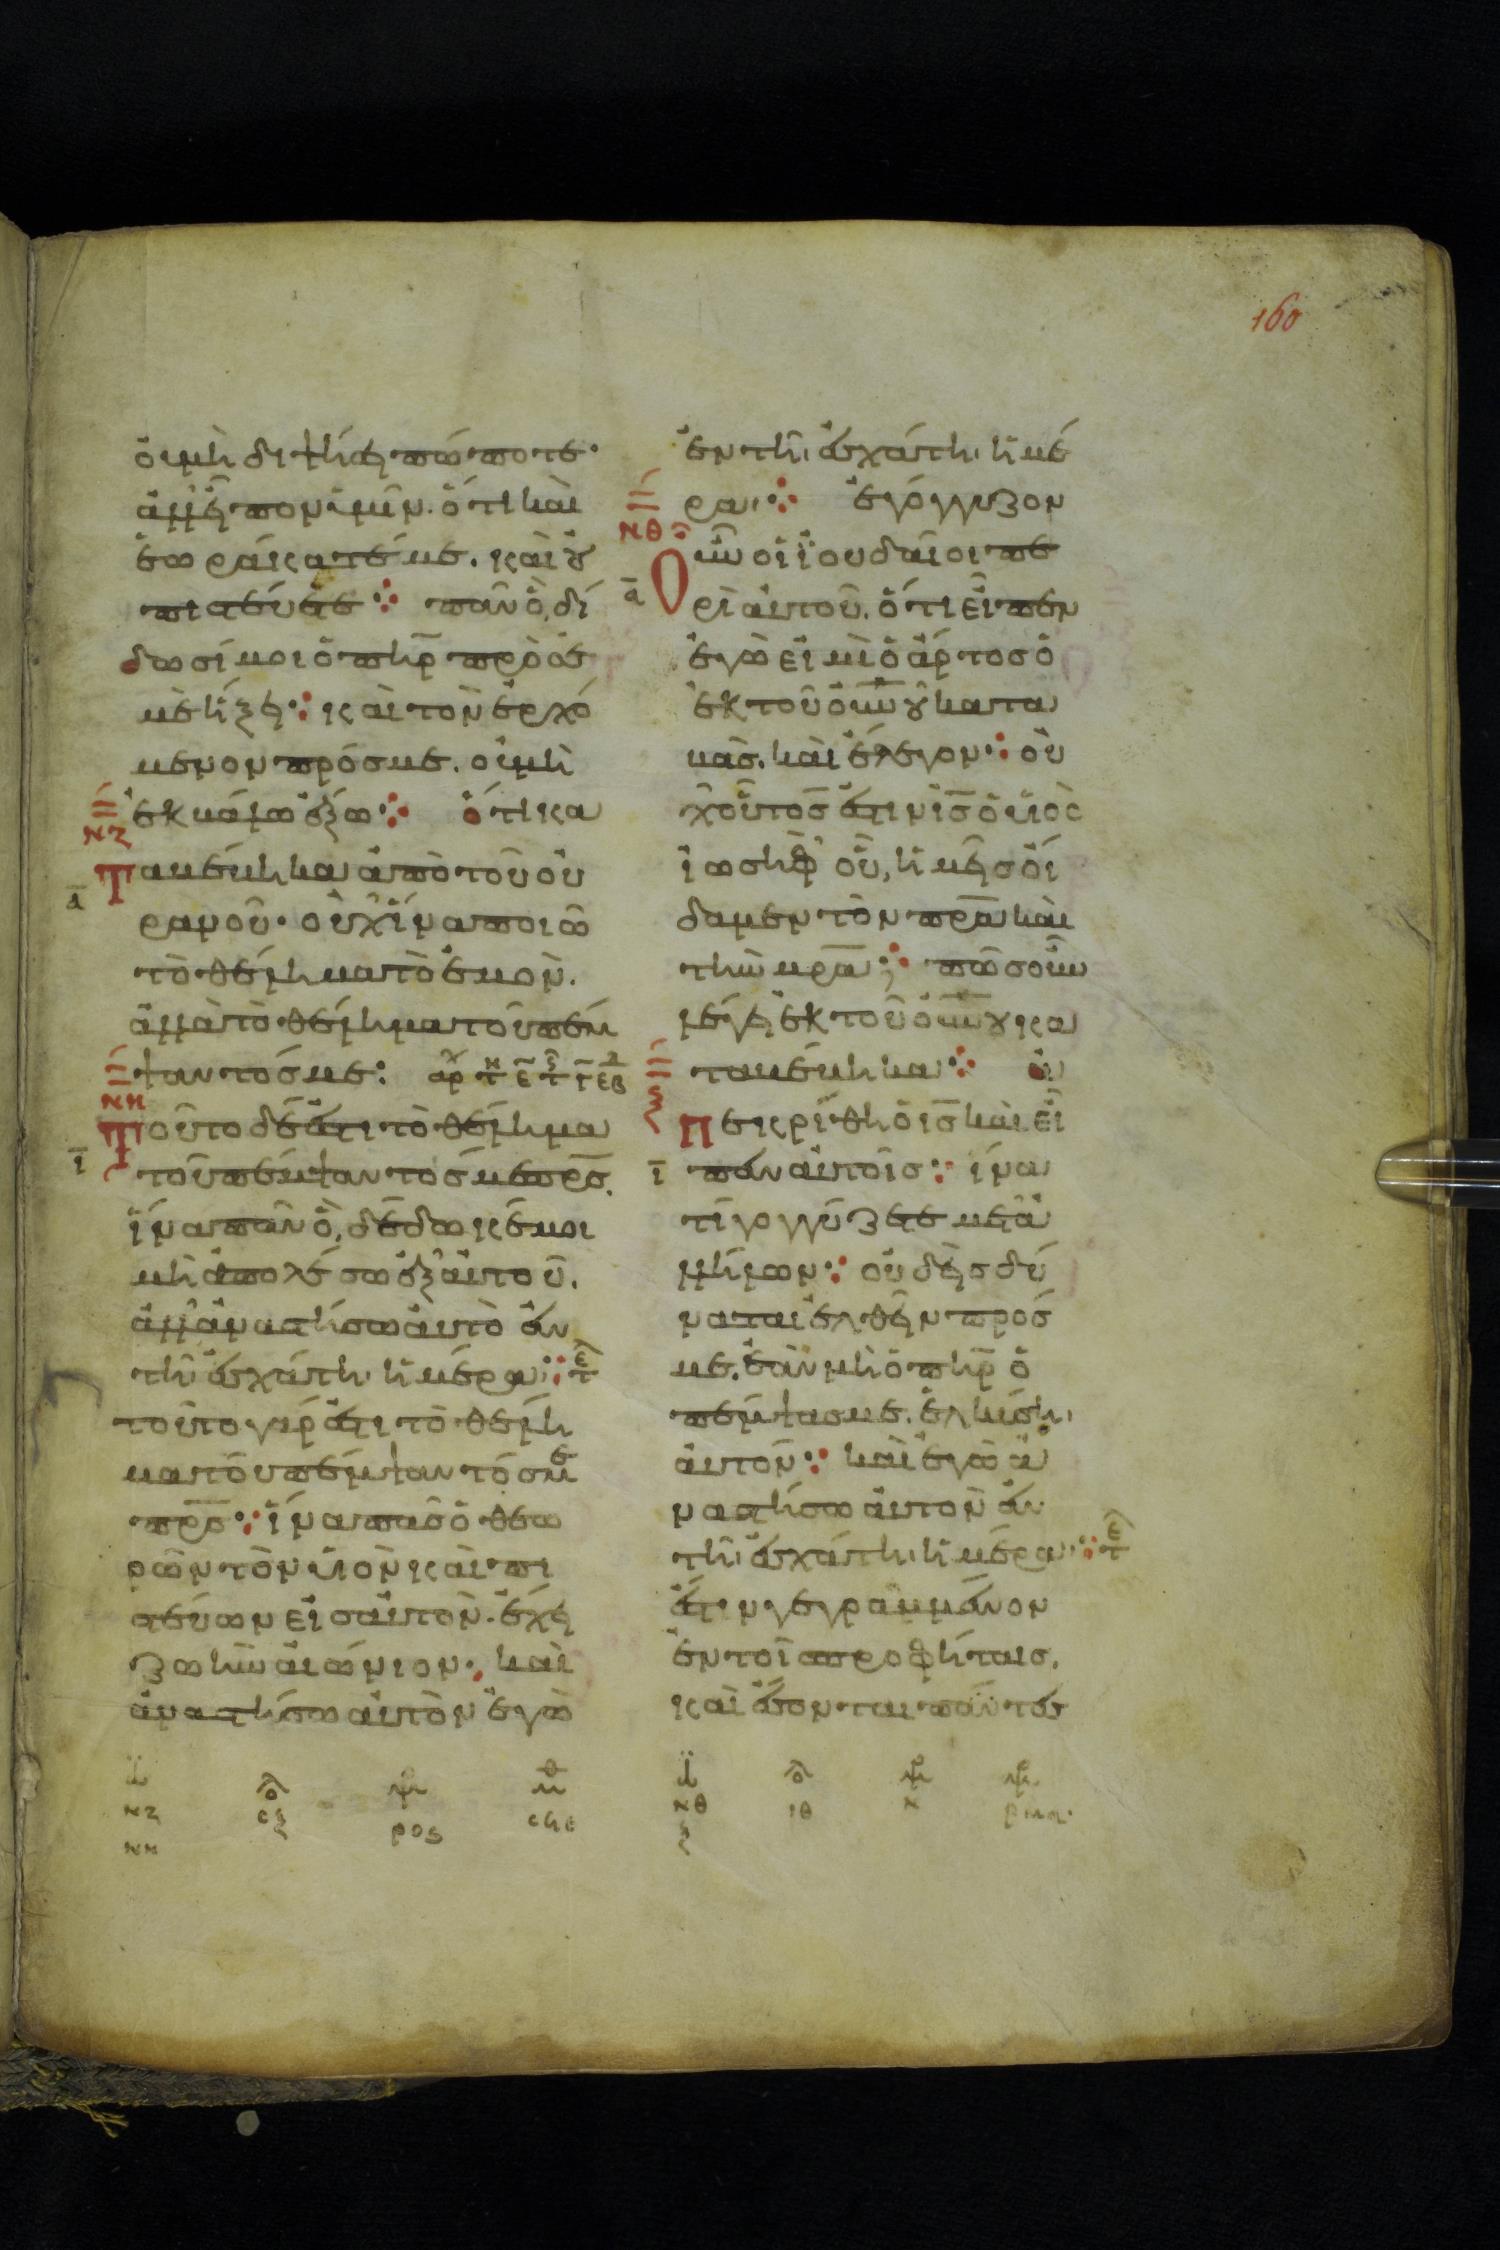 160
ὀυ μὴ διψήσει πώποτε·
ἀλλ' εἶπον ὑμῖν. ὅτι καὶ
ἑωράκατέ με. καὶ οὐ
πιστεύετε ⁘ πᾶν ὃ, δί
δωσί μοι ὁ πηρ̅ πρὸς
μὲ ἥξει ⁘ καὶ τὸν ἐρχό
μενον πρός με. οὐ μὴ
ἐκβάλω ἔξω ⁘ ὅτι κα
νζ
Ταβέβηκα ἀπὸ τοῦ οὐ
α̅
ρανοῦ· οὐχ ἵνα ποιῶ
τὸ θέλημα τὸ ἐμὸν.
ἀλλὰ τὸ θέλημα τοῦ πέμ
ψαντός με: αρχ
νη
Τοῦτο δέ ἐστι τὸ θέλημα
ι̅
τοῦ πέμψαντός με πρς̅.
ἵνα πᾶν ὃ, δέδωκέ μοι
μὴ ἀπολέσω ἐξ αὐτοῦ.
ἀλλ' ἀναστήσω αὐτὸ ἐν
τῆ ἐσχάτη ἡμέρα ⁘ τε
τοῦτο γάρ ἐστι τὸ θέλη
μα τοῦ πέμψαντός με
πρς̅ ⁘ ἵνα πᾶς ὁ θεω
ρῶν τὸν υἱὸν καὶ πι
στεύων εἰς αὐτὸν. ἔχει
ζωὴν αἰώνιον, καὶ
ἀναστήσω αὐτὸν ἐγὼ
ἐν τῆ ἐσχάτη ἡμέ
ρα ⁘ ἐγόγγυζον
νθ
Οὖν οἱ ἰουδαῖοι πε
α̅
ρὶ αὐτοῦ. ὅτι εἶπεν
ἐγὼ εἰμὶ ὁ ἄρτος ὁ
ἐκ τοῦ ουνου̅ καταβὰς
μὰς. καὶ ἔλεγον ⁘ οὐ
χ οὗτος ἐστιν ις̅ ὁ υἱὸς
ἰωσὴφ οὗ, ἡμεῖς οἴ
δαμεν τὸν πρα̅ καὶ
τὴν μρα̅ ⁘ πῶς οὖν
λέγει ἐκ τοῦ ουνου̅ κα
ταβέβηκα ⁘ ἀ
ξ
Πεκρίθη ὁ ις̅ καὶ εἶ
ι̅
πεν αὐτοῖς ⁘ ἵνα
τί γογγύζετε μετ' ἀ
λλήλων ⁘ οὐδεὶς δύ
ναται ἐλθεῖν πρός
με. ἐὰν μὴ ὁ πηρ̅ ὁ
πέμψας με. ἑλκύση
αὐτόν ⁘ καὶ ἐγὼ ἀ
ναστήσω αὐτὸν ἐν
τῆ ἐσχάτη ἡμέρα ⁘ τε
ἔστιν γεγραμμένον
ἐν τοῖς προφήταις.
καὶ ἔσονται πάντες
νζ
νη
νθ ιθ κ
ξ